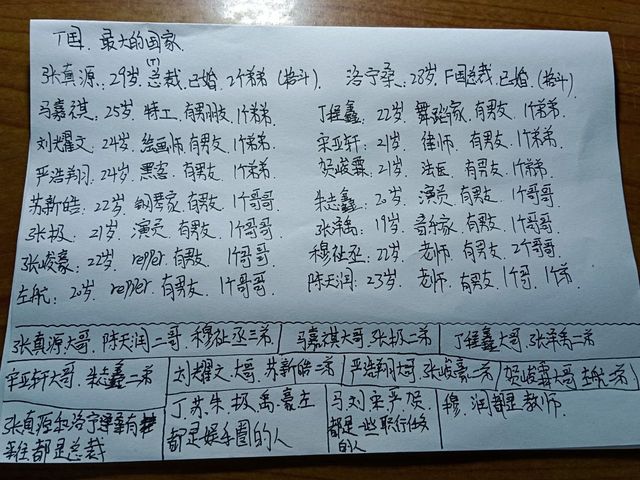 丁国.最大的国家.
张真源:29岁,总裁,已婚,2个弟弟(格斗) 洛宁桑:28岁,F国总裁,已婚,(格斗)
马嘉祺:25岁,特工,有男朋友,1个弟弟. 丁程鑫:22岁,舞蹈家,有男友,1个弟弟.
刘耀文:24岁,绘画师,有男友,1个弟弟. 宋亚轩:21岁,律师,有男友,1个弟弟.
严浩翔:24岁,黑客,有男友,1个弟弟 贺峻霖:21岁,法医,有男友,1个弟弟
苏新皓:22岁,钢琴家,有男友,1个哥哥. 朱志鑫:20岁,演员,有男友,1个哥哥
张极:21岁,演员,有男友,1个哥哥 张泽禹:19岁,音乐家,有男友,1个哥哥
张峻豪:22岁,repper,有男友,1个哥哥. 穆祉丞:22岁,老师,有男友,2个哥哥
左航:20岁,repper,有男友,1个哥哥. 陈天润:23岁,老师,有男友,1个哥,1个弟.
张真源大哥,陈天润二哥,穆祉丞三弟. 马嘉祺大哥,张极二弟 丁程鑫大哥,张泽禹二弟
宋亚轩大哥,朱志鑫二弟 刘耀文大哥,苏新皓二弟 严浩翔大哥,张峻豪二弟 贺峻霖大哥,左航二弟
张真源和洛宁桑有
都是总裁
丁苏朱极禹豪左
都是娱乐圈的人
马刘宋严贺
都是一些职行任务
的人
穆,润都是教师.